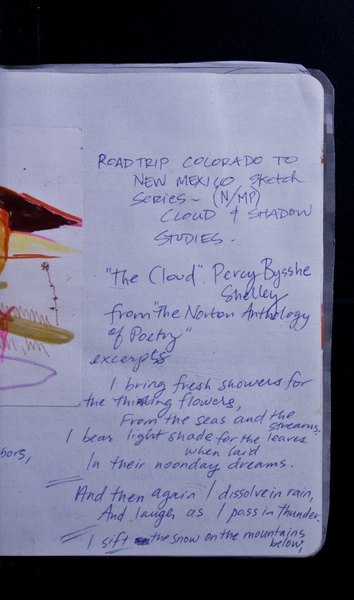 ROADTRIP COLORADO TO
NEW MEXICO Sketch
Series - (N/MP)
CLOUD & SHADOW
STUDIES -
"The Cloud". Percy Bysshe
Shelley
from "The Norton Anthology
of Poetry"
excerpts
I bring fresh showers for
the thirsting flowers,
From the seas and the
streams.
I bear light shade for the leaves
when laid
In their noonday dreams.
And then again I dissolve in rain,
And laugh as I pass in Thunder.
bors,
I sift the snow on the mountains
below,